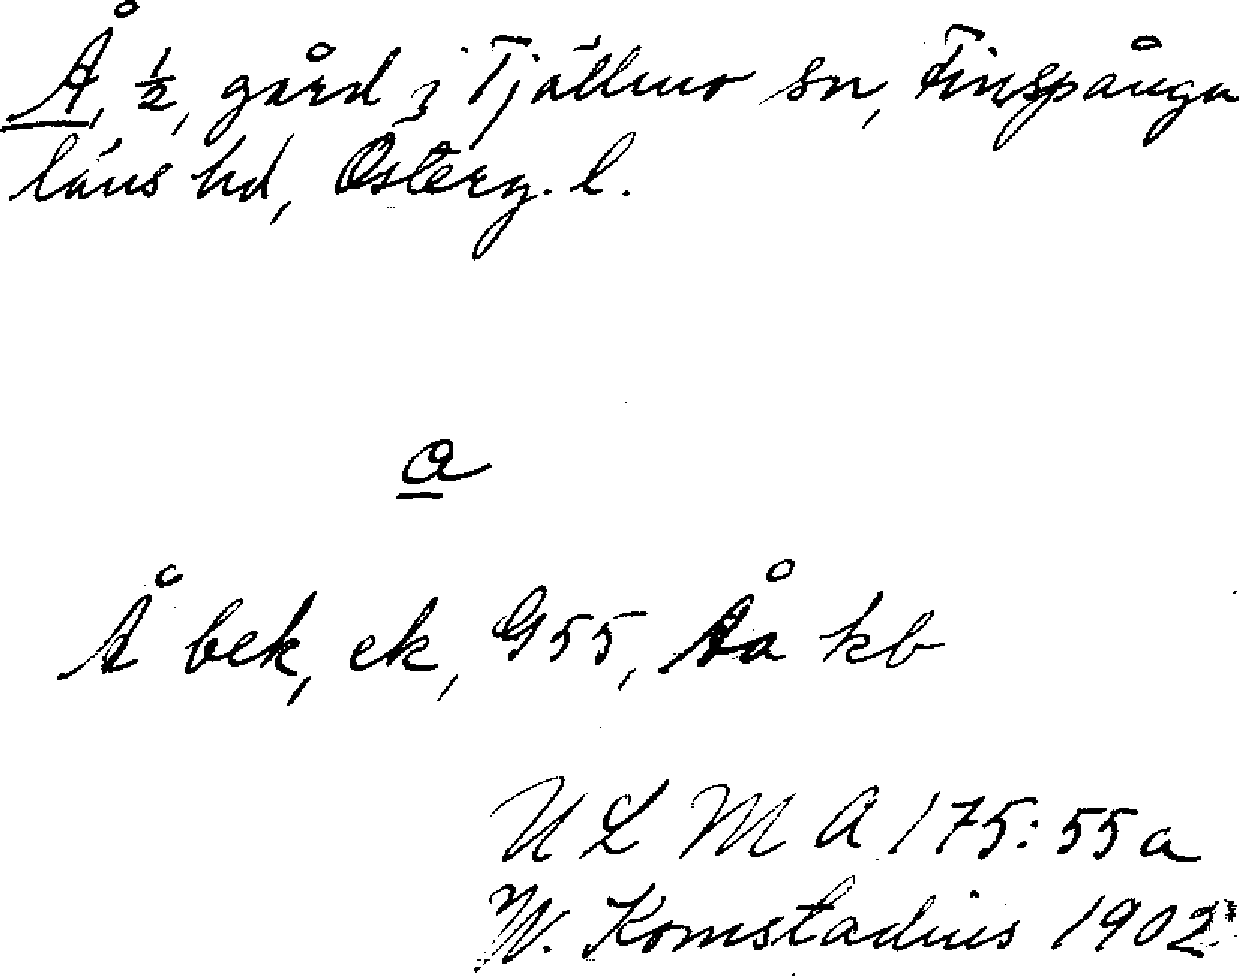 Å, ½, gård i Tjällmo sn, Finspånga
läns hd, Österg. l.
a
Å bek, ek, G55, Åa kb
ULMA 175:55a
W. Komstadius 1902